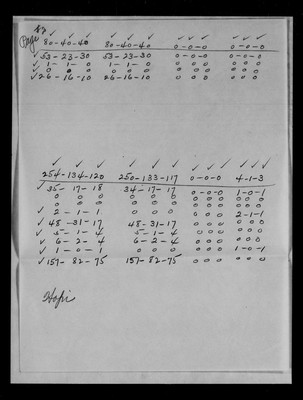 Page
✓ ✓ ✓ ✓ ✓ ✓ ✓ ✓ ✓
80-40-40 80-40-40 0-0-0 0-0-0
✓ 53-23-30 53-23-30 0-0-0 0-0-0
✓ 1-1-0 1-1-0 0 0 0 0 0 0
✓ 0 0 0 0 0 0 0 0 0 0 0 0
✓ 26-16-10 26-16-10 0 0 0 0 0 0
✓ ✓ ✓ ✓ ✓ ✓ ✓ ✓ ✓ ✓ ✓ ✓
254-134-120 250-133-117 0-0-0 4-1-3
✓ 35-17-18 34-17-17 0-0-0 1-0-1
0 0 0 0 0 0 0 0 0 0 0 0
0 0 0 0 0 0 0 0 0 0 0 0
✓ 2-1-1 0 0 0 0 0 0 2-1-1
✓ 48-31-17 48-31-17 0 0 0 0 0 0
✓ 5-1-4 5-1-4 0 0 0 0 0 0
✓ 6-2-4 6-2-4 0 0 0 0 0 0
✓ 1-0-1 0 0 0 0 0 0 1-0-1
✓ 157-82-75 157-82-75 0 0 0 0 0 0
Hopi